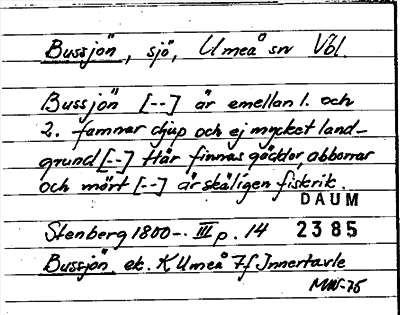 Bussjön, sjö, Umeå sn Vbl.
Bussjön [--] är emellan 1. och
2. famnar djup och ej mycket land-
grund [--] Här finnas gäddor, abborrar
och mört [--] är skäligen fiskrik.
DAUM
Stenberg 1800-. III p. 14 2385
Bussjön ek. K Umeå 7f Innertavle
MW-75